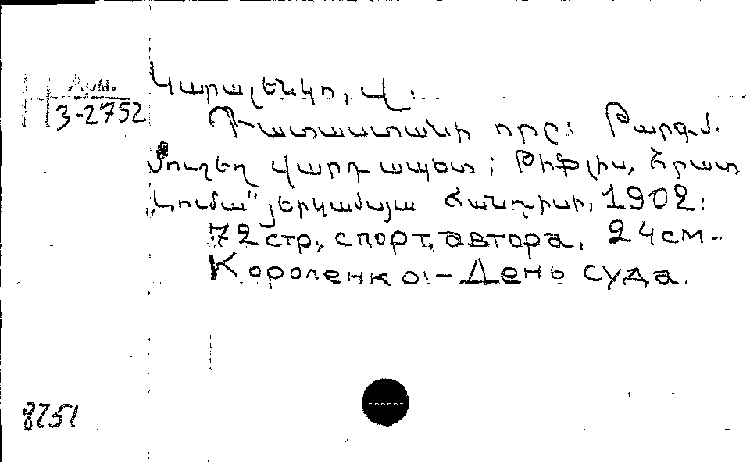 Арм.
3-2752
Կարալենկո, Վ.
Դատաստանի որը: Թարգմ.
Մուշեղ վարդապետ; Թիֆլիս, Հրատ
„Լումա" յերկամսյա հանդիսի, 1902:
72 стр., с порт. автора. 24 см.
Короленко. - День суда.
8251